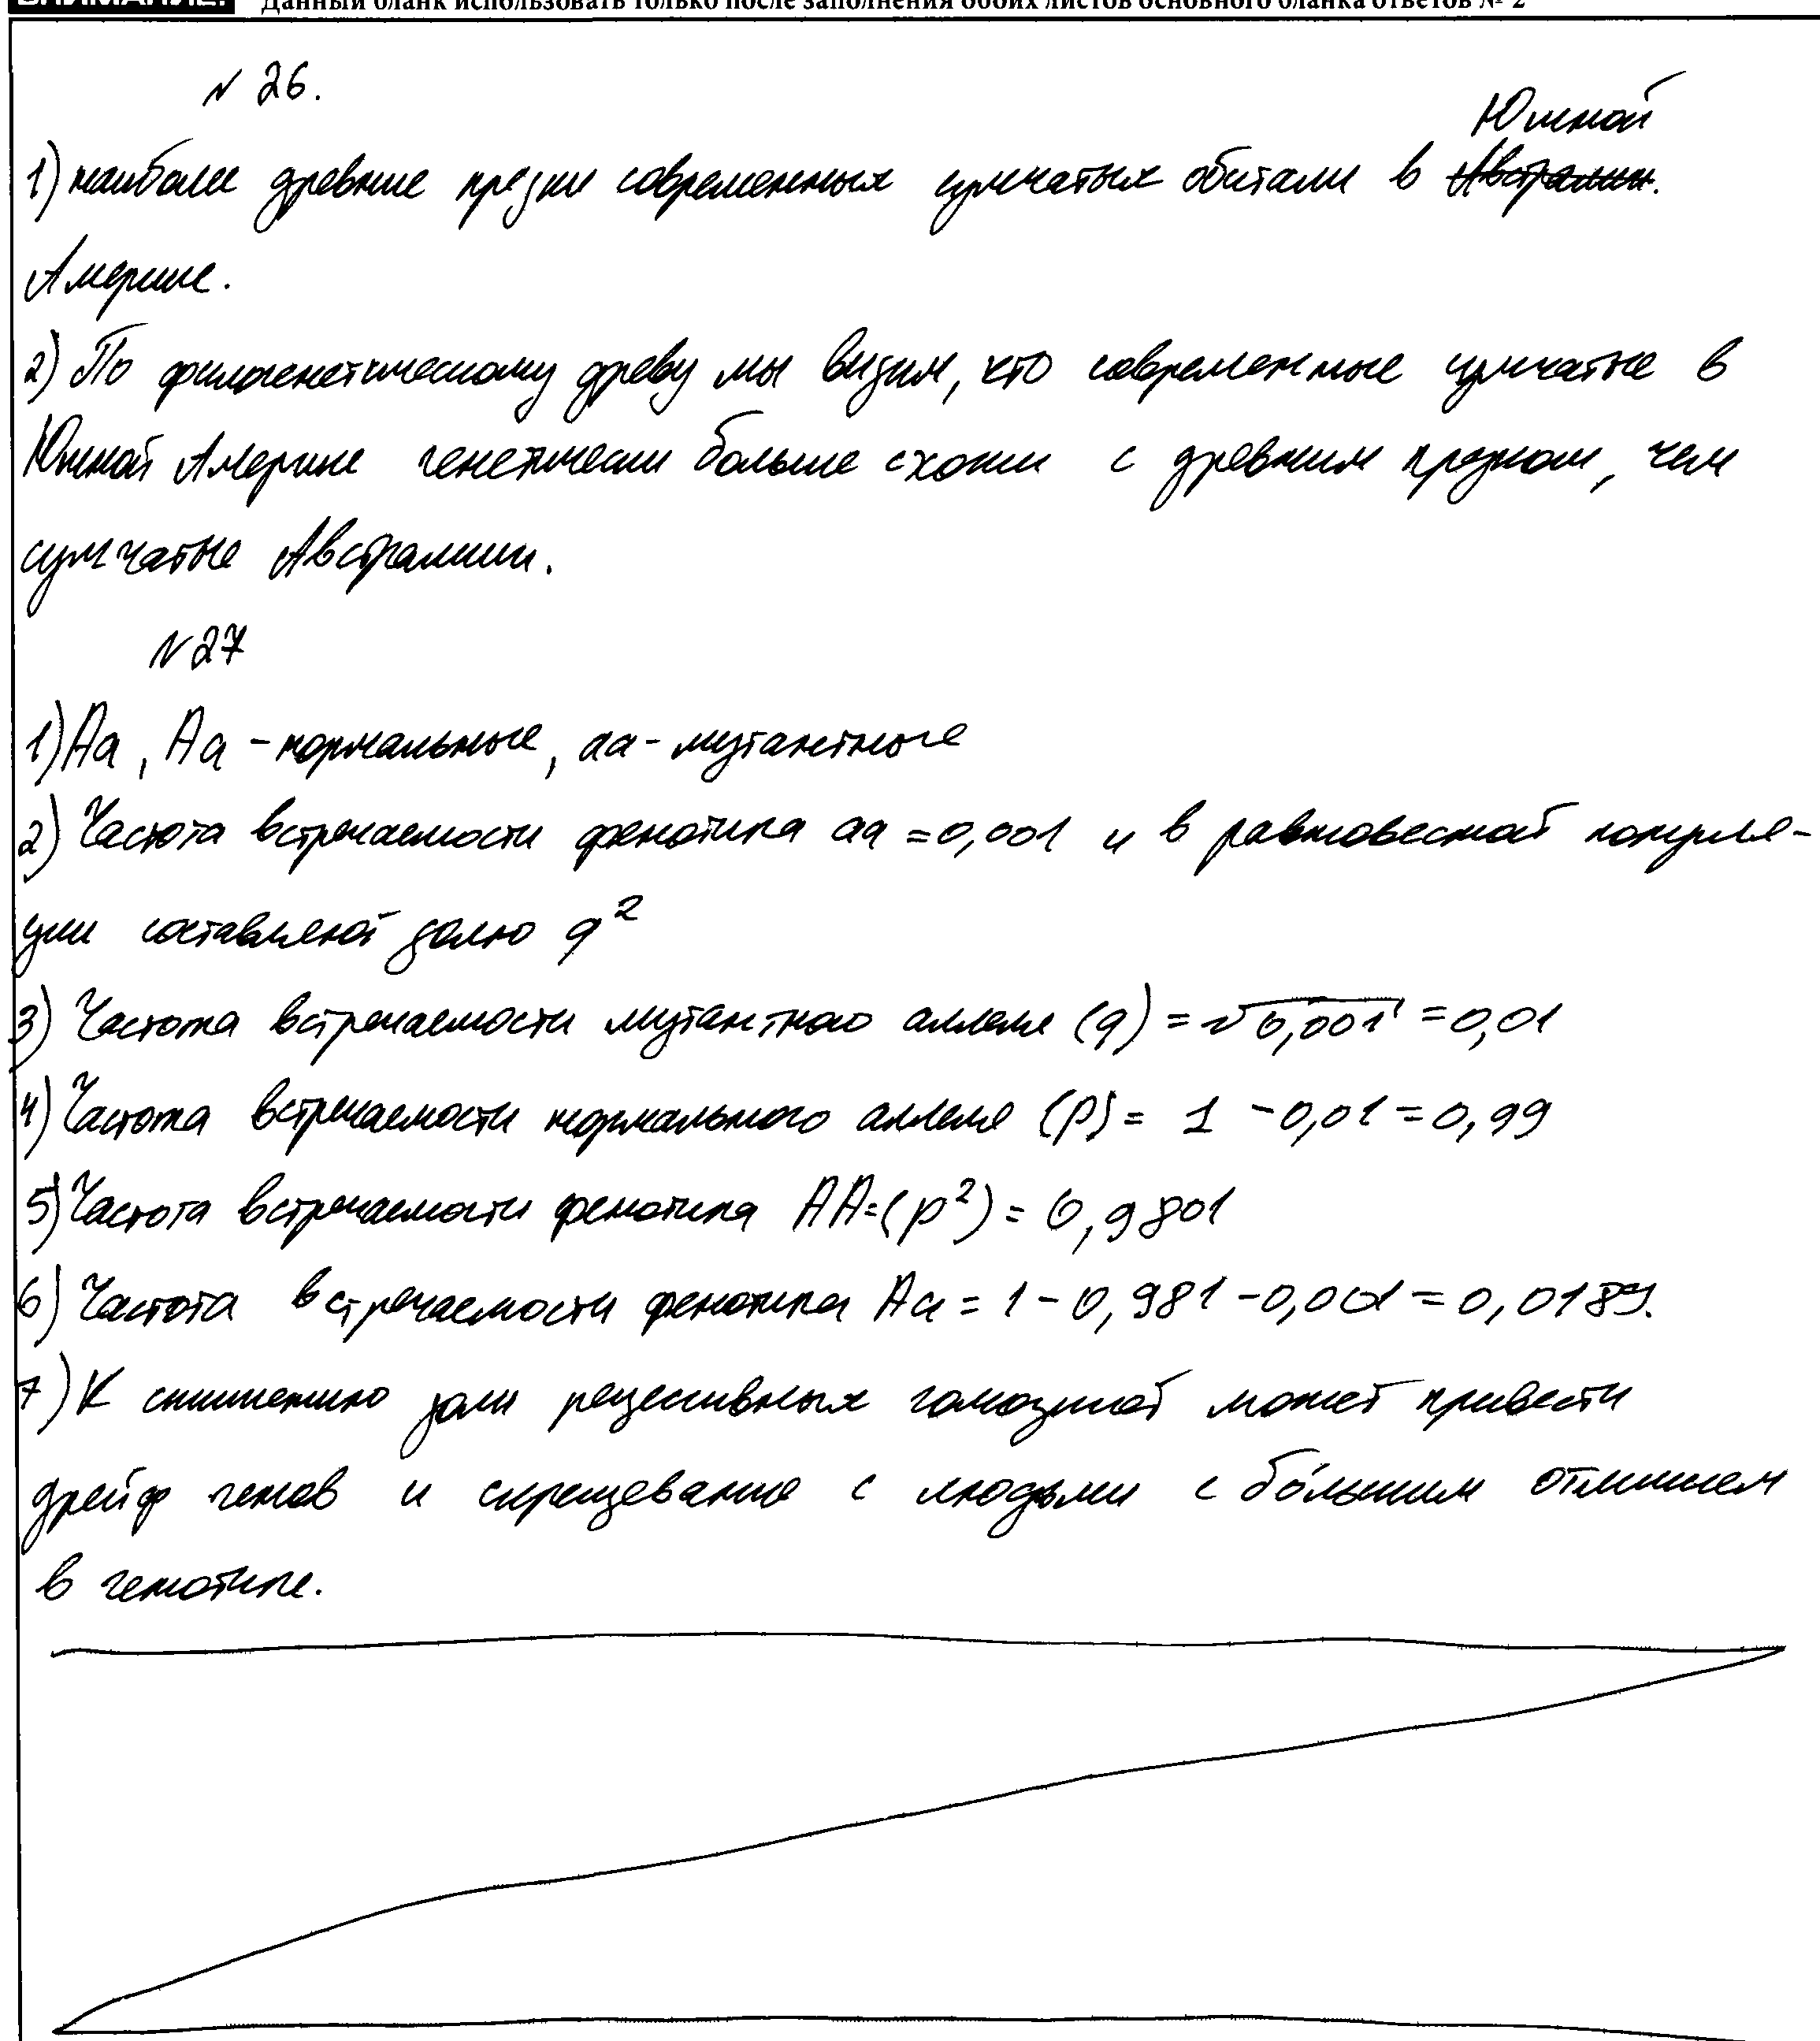 ВНИМАНИЕ! Данный бланк использовать только после заполнения обоих листов основного бланка ответов № 2
№ 26.
Южной
1) наиболее древние предки современных сумчатых обитали в Австралии.
Америке.
2) По филогенетическому древу мы видим, что современные сумчатые в
Южной Америке генетически больше схожи с древним предком, чем
сумчатые Австралии.
№27
1) Aa, Aa - нормальные, aa - мутантные
2) Частота встречаемости фенотипа aa = 0,001 и в равновесной популя-
ции составляет долю q²
3) Частота встречаемости мутантного аллеля (q) = √0,001 = 0,01
4) Частота встречаемости нормального аллеля (p) = 1 - 0,01 = 0,99
5) Частота встречаемости фенотипа AA = (p²) = 0,9801
6) Частота встречаемости фенотипа Aa = 1 - 0,981 - 0,001 = 0,0189.
7) К снижению доли рецессивных гомозигот может привести
дрейф генов и скрещевание с людьми с бо́льшим отличием
в генотипе.